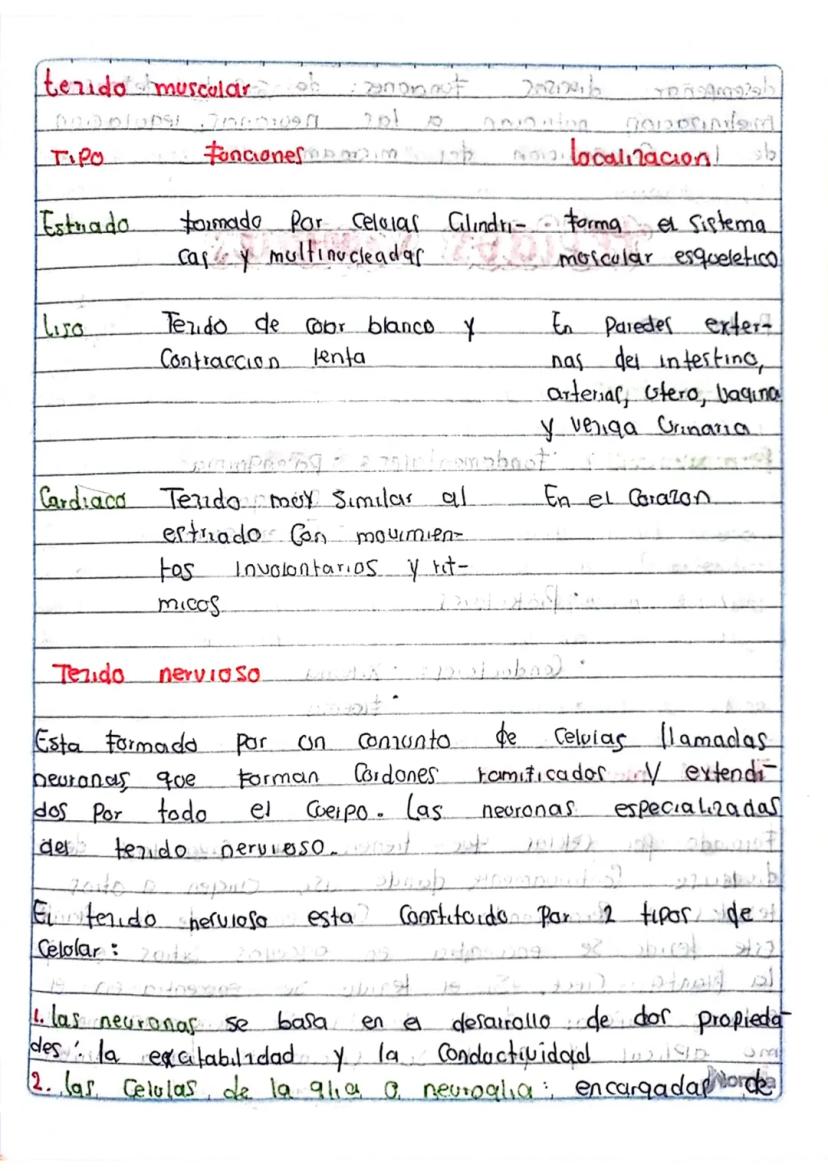 tejido muscular
Tipo funciones localizacion
Estriado formado Por Celulas Cilindri- forma el Sistema
cas y multinucleadas muscular esqueletico
liso Tejido de color blanco y En Paredes exter-
Contraccion lenta nas del intestino,
arterias, Utero, Vagina
y vejiga Urinaria
Cardiaco Tejido muy Similar al En el Corazon
estriado Con movimien-
tos Involontarios y rit-
micos
Tejido nervioso
Esta formado por un conjunto de Celulas llamadas
neuronas que forman Cordones ramificados y extendi-
dos Por todo el Cuerpo. Las neuronas especializadas
del tejido nervioso.
El tejido nervioso esta Constituido Por 2 tipos de
Celulas:
1. las neuronas se basa en el desarrollo de dos propieda-
des: la excitabilidad y la Conductividad
2. las Celulas de la glia o neuroglia: encargadas de
Norma